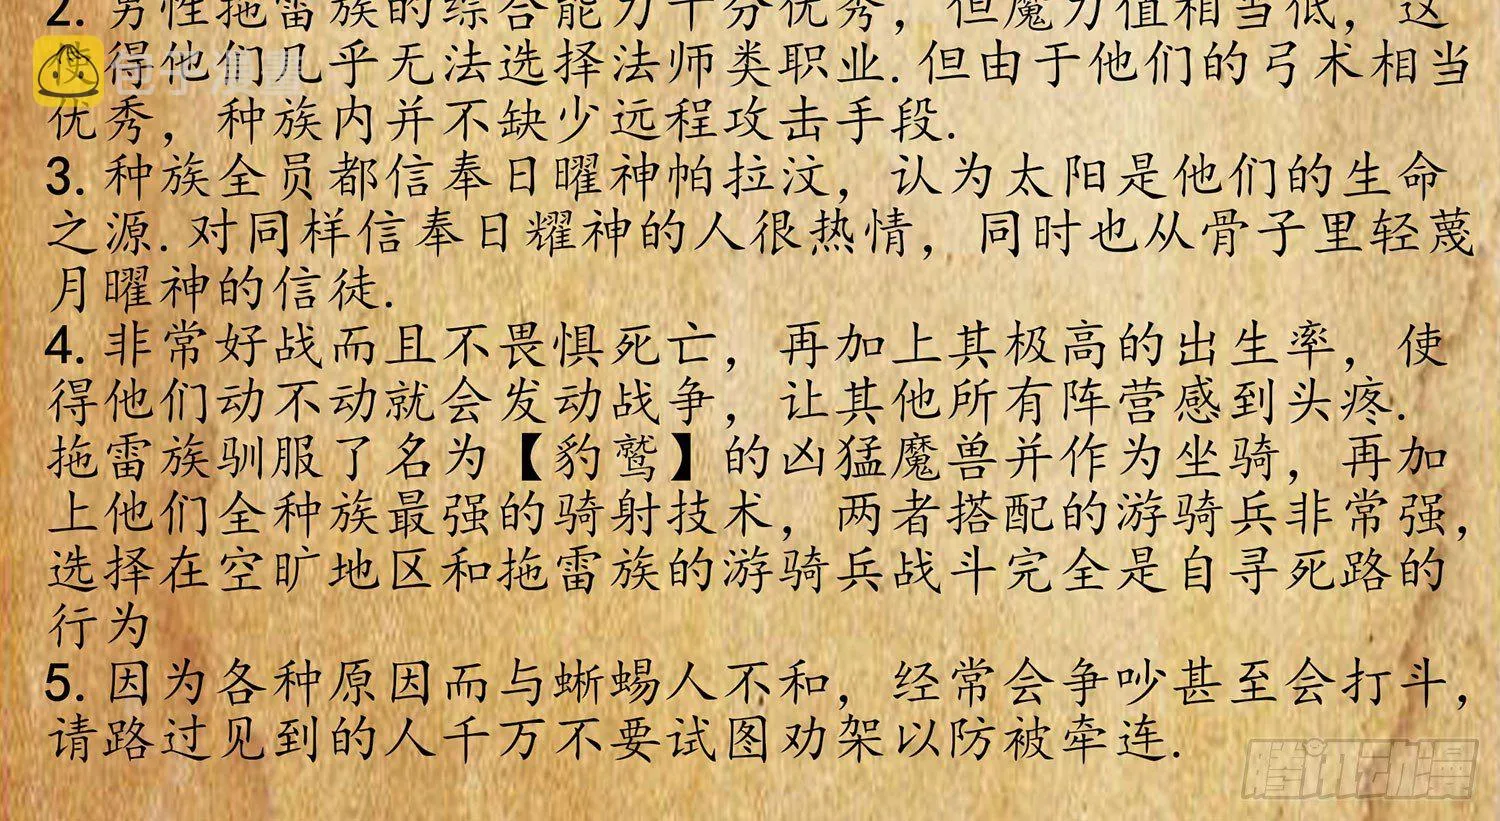 2. 男性拖雷族的综合能力十分优秀，但魔力值相当低，这
使得他们几乎无法选择法师类职业. 但由于他们的弓术相当
优秀，种族内并不缺少远程攻击手段.
3. 种族全员都信奉日曜神帕拉汶，认为太阳是他们的生命
之源. 对同样信奉日耀神的人很热情，同时也从骨子里轻蔑
月曜神的信徒.
4. 非常好战而且不畏惧死亡，再加上其极高的出生率，使
得他们动不动就会发动战争，让其他所有阵营感到头疼.
拖雷族驯服了名为【豹鹫】的凶猛魔兽并作为坐骑，再加
上他们全种族最强的骑射技术，两者搭配的游骑兵非常强，
选择在空旷地区和拖雷族的游骑兵战斗完全是自寻死路的
行为
5. 因为各种原因而与蜥蜴人不和，经常会争吵甚至会打斗，
请路过见到的人千万不要试图劝架以防被牵连.
腾讯动漫